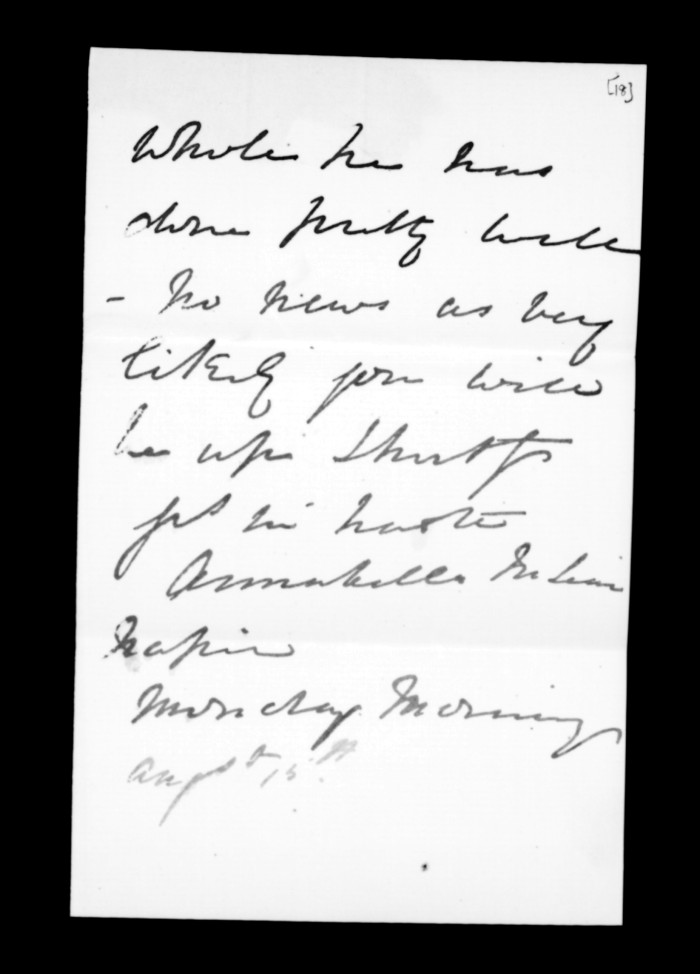 [18]
Whole he has
done pretty well
- no news as very
likely you will
be up shortly
yrs in haste
Annabella McLean
Napier
Monday Morning
Augst 15th